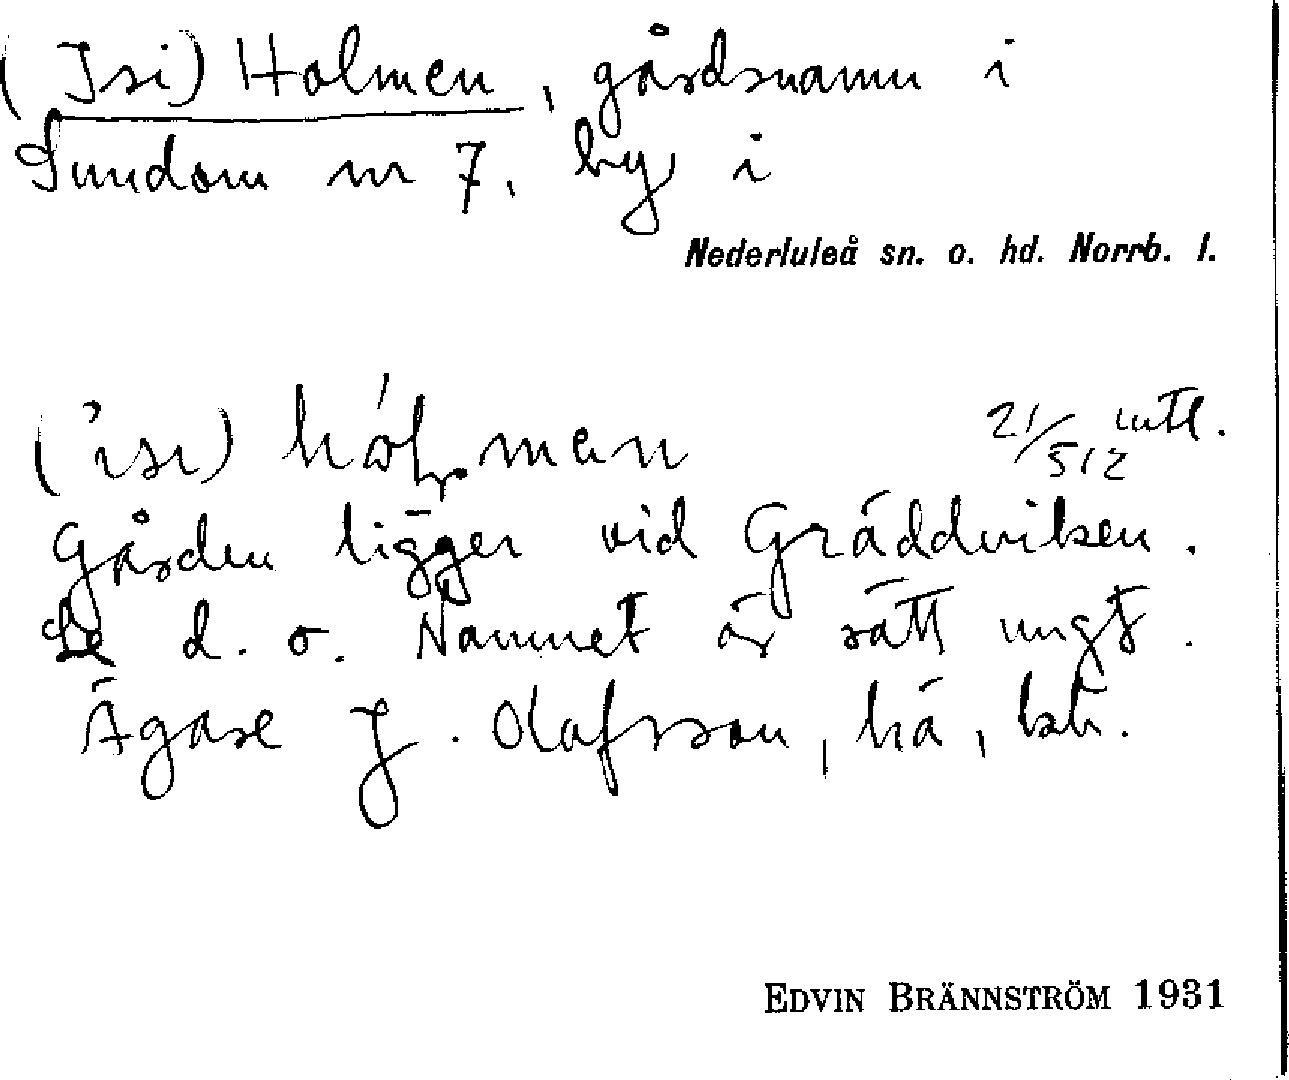 (Isi) Holmen, gårdsnamn i
Sundom nr 7, by i
Nederluleå sn. o. hd. Norrb. l.
('ısı) hólman
21/512 mtl.
Gården ligger vid Gräddviken.
Se d. o. Namnet är rätt ungt.
Ägare J. Olofsson, hä, bö.